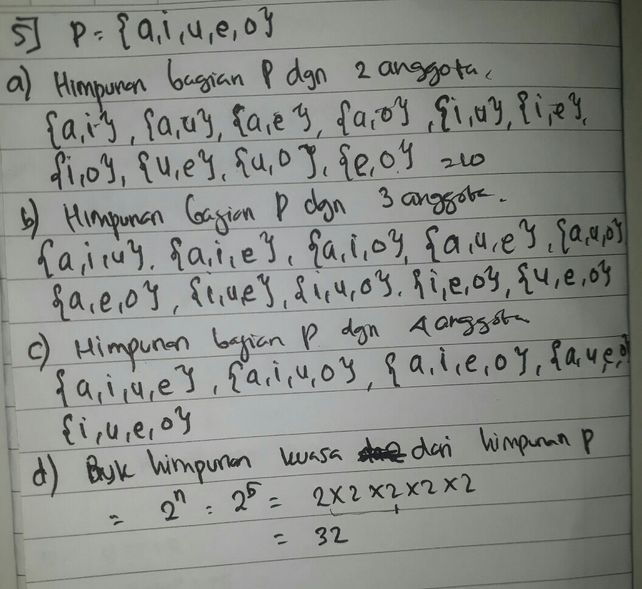 5] P = {a,i,u,e,o}
a) Himpunan bagian P dgn 2 anggota.
{a,i}, {a,u}, {a,e}, {a,o}, {i,u}, {i,e},
{i,o}, {u,e}, {u,o}, {e,o} = 10
b) Himpunan bagian P dgn 3 anggota.
{a,i,u}. {a,i,e}, {a,i,o}, {a,u,e}, {a,u,o}
{a,e,o}, {i,ue}, {i,u,o}. {i,e,o}, {u,e,o}
c) Himpunan bagian P dgn 4 anggota
{a,i,u,e}, {a,i,u,o}, {a,i,e,o}, {a,u,e,o}
{i,u,e,o}
d) Byk himpunan kuasa dari himpunan P
= 2ⁿ = 2⁵ = 2×2×2×2×2
= 32